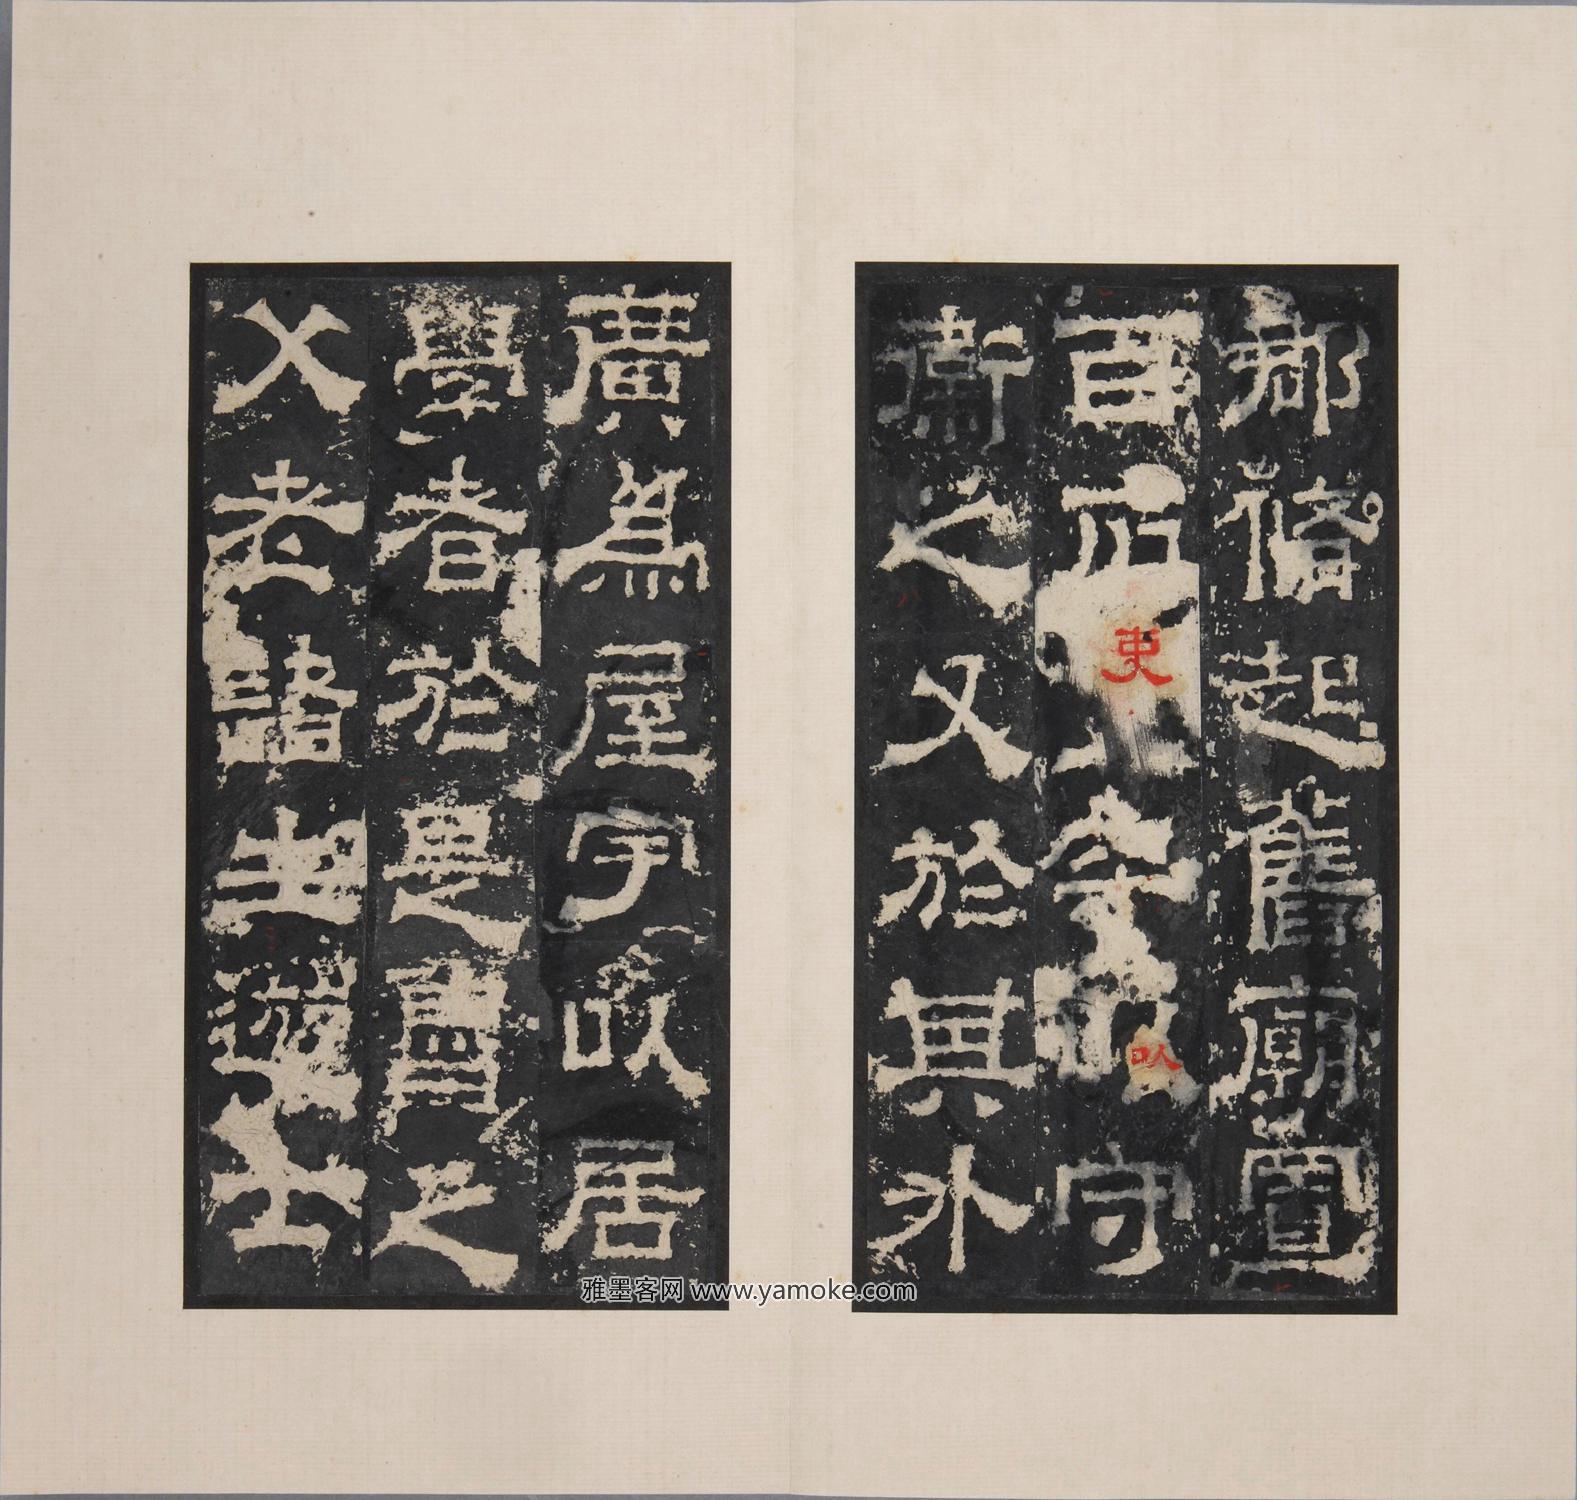 郡脩起舊廟置
百石吏卒以守
衛之又於其外
廣為屋宇以居
學者於是魯之
父老諸生遊士
雅墨客网 www.yamoke.com